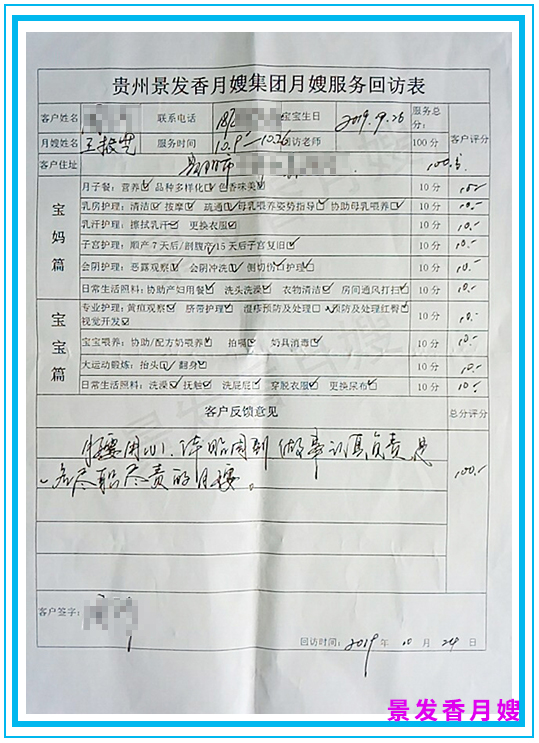 贵州景发香月嫂集团月嫂服务回访表
客户姓名 联系电话 宝宝生日 2019.9.26 服务总分: 客户评分
月嫂姓名 服务时间 10.9-10.26 回访老师 100分
客户住址 100分
宝妈篇
月子餐:营养☑ 品种多样化☑ 色香味美☑ 10分 10.-
乳房护理:清洁☑ 按摩☑ 疏通☑ 母乳喂养姿势指导☑ 协助母乳喂养☑ 10分 10.-
乳汗护理:擦拭乳汗☑ 更换衣服☑ 10分 10.-
子宫护理:顺产7天后/剖腹产15天后子宫复旧☑ 10分 10.-
会阴护理:恶露观察☑ 会阴冲洗☑ 侧切伤口护理☑ 10分 10.-
日常生活照料:协助产妇用餐☑ 洗头洗澡☑ 衣物清洁☑ 房间通风打扫☑ 10分 10.-
宝宝篇
专业护理:黄疸观察☑ 脐带护理☑ 湿疹预防及处理□ 预防及处理红臀☑
视觉开发☑ 10分 10.-
宝宝喂养:协助/配方奶喂养☑ 拍嗝☑ 奶具消毒☑ 10分 10.-
大运动锻炼:抬头☑ 翻身☑ 10分 10.-
日常生活照料:洗澡☑ 抚触☑ 洗屁屁☑ 穿脱衣服☑ 更换尿布☑ 10分 10.-
客户反馈意见 总分评分
月嫂用心、体贴周到 做事认真负责是
一名尽职尽责的月嫂。
100.-
客户签字:
回访时间: 2019 年 10 月 24 日
景发香月嫂